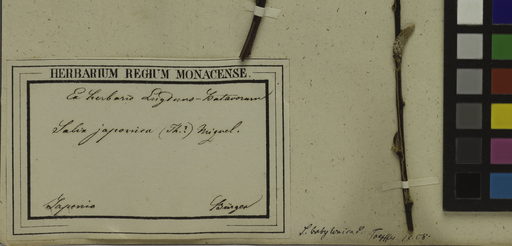 HERBARIUM REGIUM MONACENSE.
Ex herbario Lugduno-Batavorum
Salix japonica (Th.?) Miquel.
Japonia Bürger
S. babylonica?